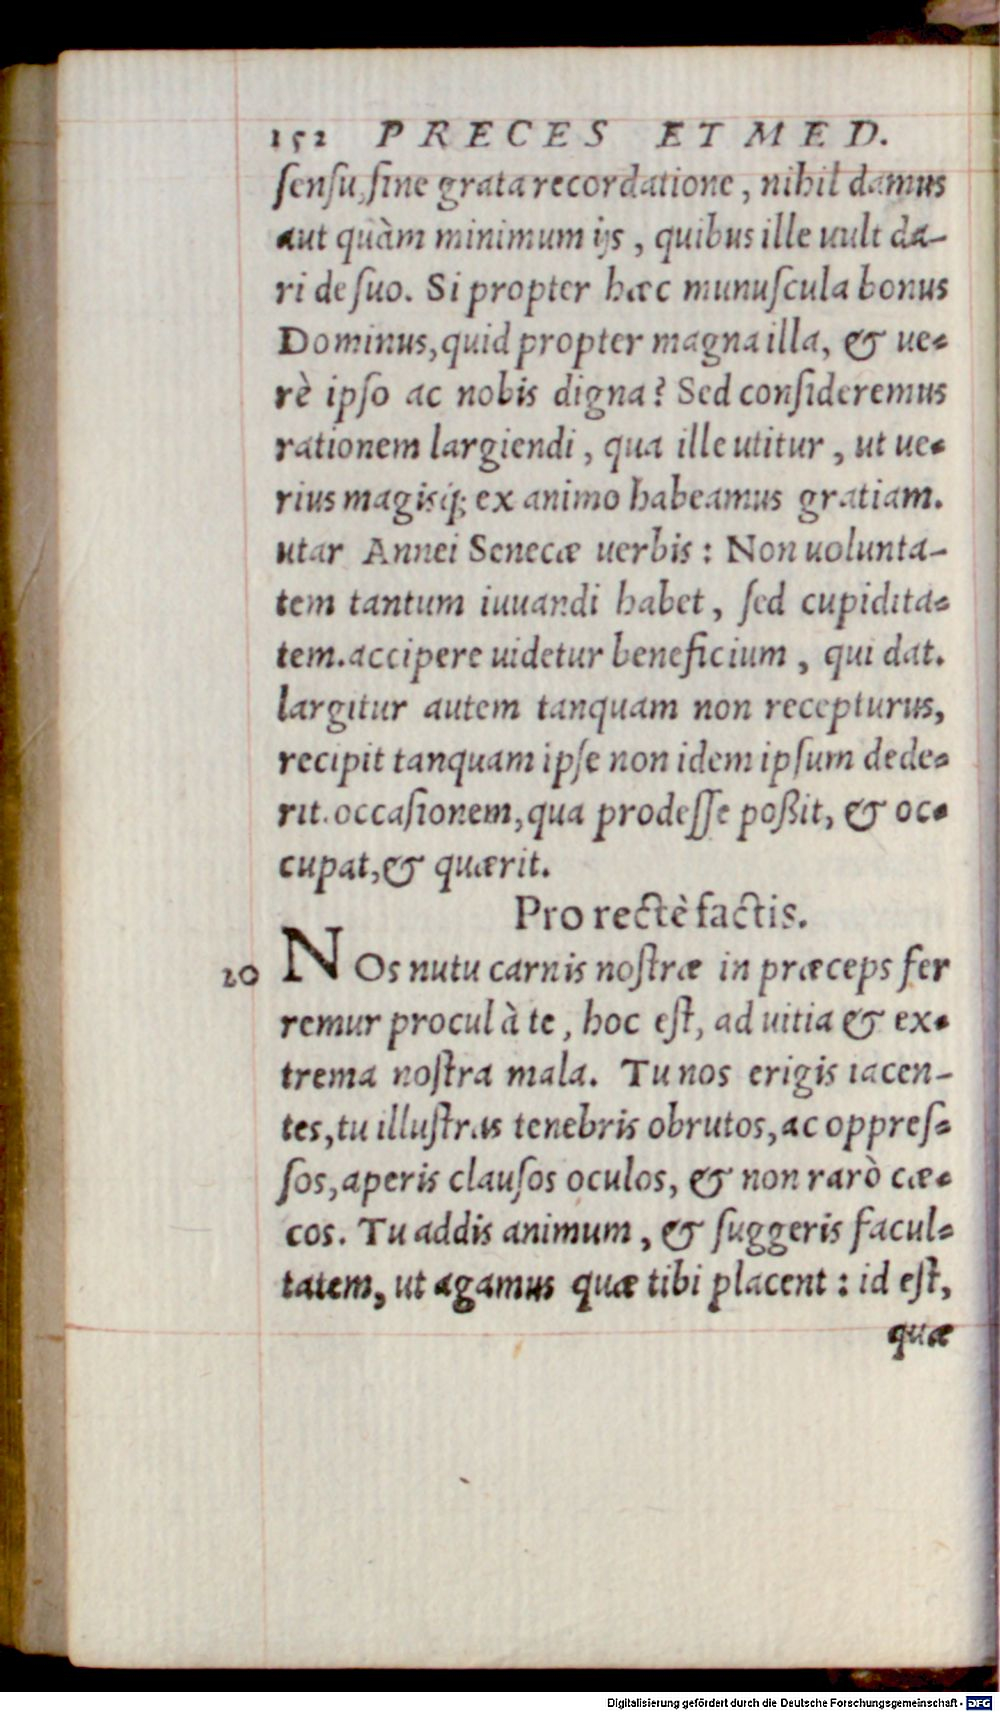 152 PRECES ET MED.
ſenſu, ſine grata recordatione, nihil damus
aut quàm minimum ijs, quibus ille uult da-
ri de ſuo. Si propter hæc munuſcula bonus
Dominus, quid propter magna illa, & ue-
rè ipſo ac nobis digna? Sed conſideremus
rationem largiendi, qua ille utitur, ut ue-
rius magisq́; ex animo habeamus gratiam.
utar Annei Senecæ uerbis: Non uolunta-
tem tantum iuuandi habet, ſed cupidita-
tem. accipere uidetur beneficium, qui dat.
largitur autem tanquam non recepturus,
recipit tanquam ipſe non idem ipſum dede-
rit. occaſionem, qua prodeſſe poßit, & oc-
cupat, & quærit.
Pro rectè factis.
20 NOs nutu carnis noſtræ in præceps fer
remur procul à te, hoc eſt, ad uitia & ex-
trema noſtra mala. Tu nos erigis iacen-
tes, tu illuſtras tenebris obrutos, ac oppreſ-
ſos, aperis clauſos oculos, & non rarò cæ-
cos. Tu addis animum, & ſuggeris facul-
tatem, ut agamus quæ tibi placent: id eſt,
quæ
Digitalisierung gefördert durch die Deutsche Forschungsgemeinschaft - DFG